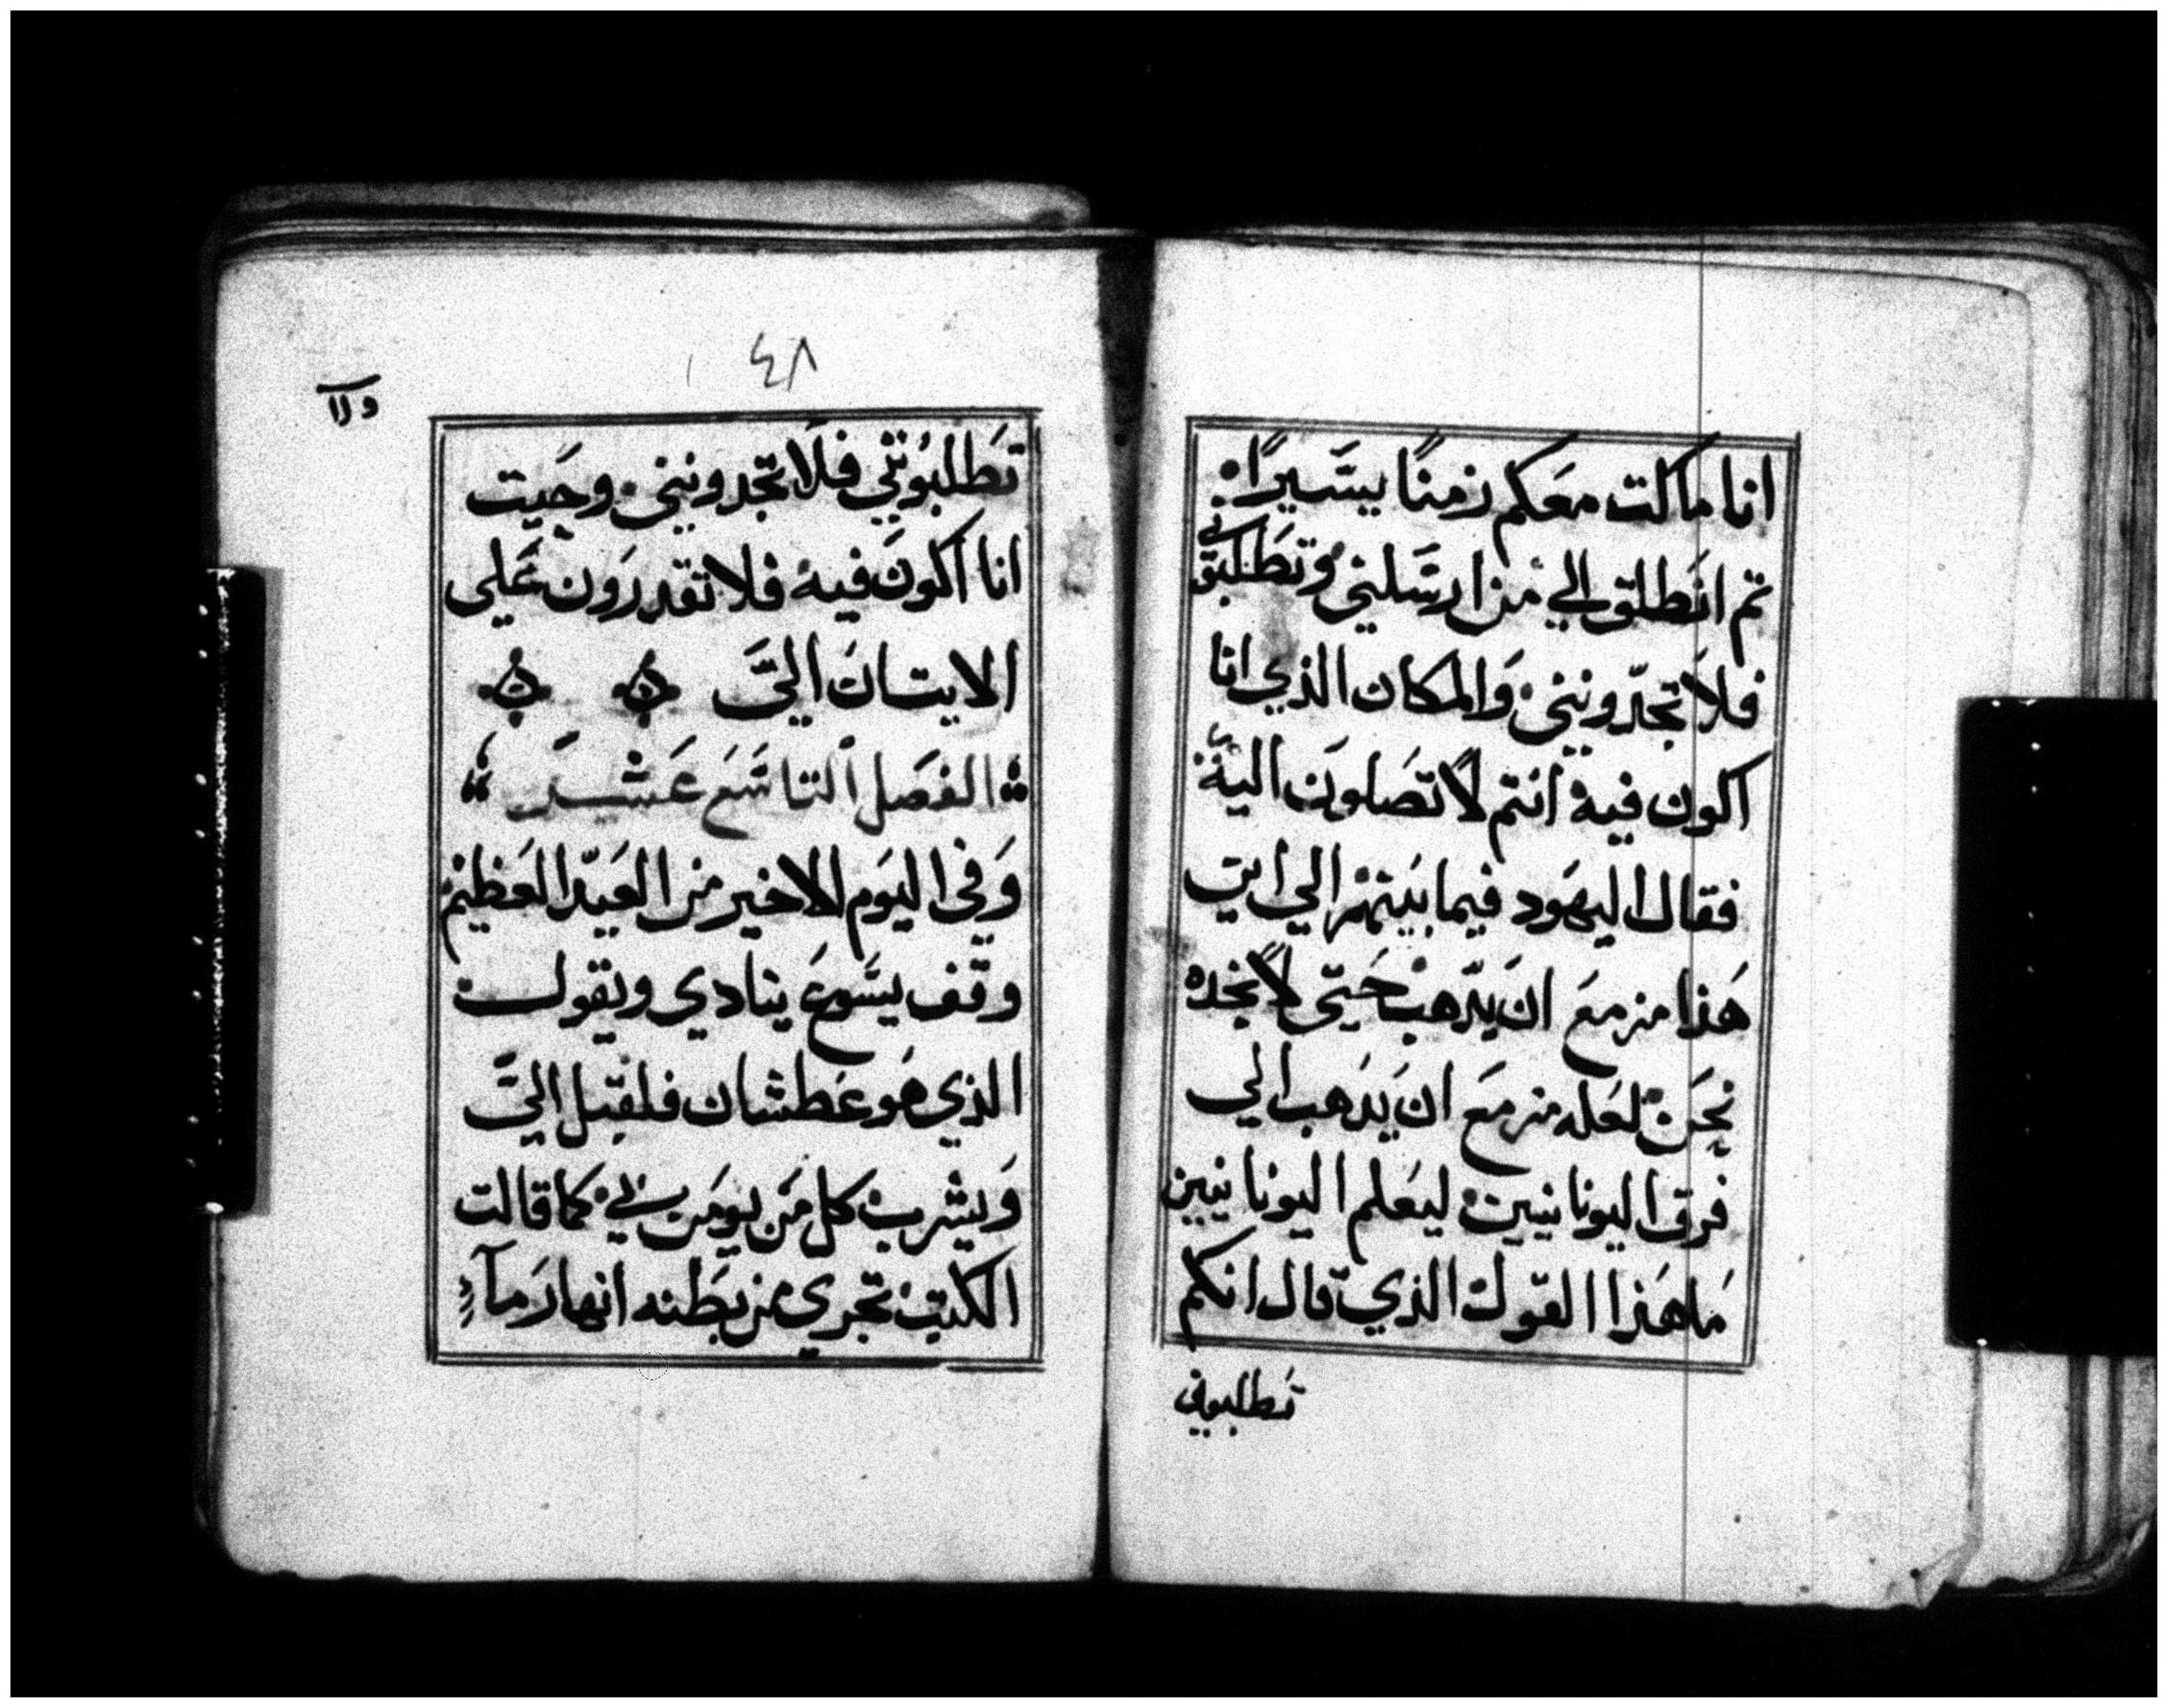 انا ماكت معَكم زمنًا يسَيرًا:
تم انَطلق الي من ارسَلني وتطَلبوني
فلاَ تجدّونني وَالمكان الذي انا
اكون فيه انتم لاَ تصَلون اليه
فقال اليهَود فيما بَينهم الي اين
هَذا مزمعَ انَ يدّهب حَتي لاَ نجده
نحَن لعَله مزمعَ انَ يدَهب الي
فرق اليونانيين ليعَلم اليونانيين
مَا هَذا القول الذي قال انكم
تطلبوني
٤٨
تطَلبوُني فلاَ تجدونني وحَيت
انا اكونَ فيه فلا تقدرَون عَلي
الايتانَ اليَّ
الفصَل التاسَعَ عَشَر
وَفي اليوَم الاخير من العَيدّ العَظيم
وقف يسَوعَ ينادي ويقول
الذي هَو عَطشان فليقبل اليَّ
وَيشرب كل مَن يومَن بي كما قالت
الكتب تجري من بطَنه انهارَ مآ